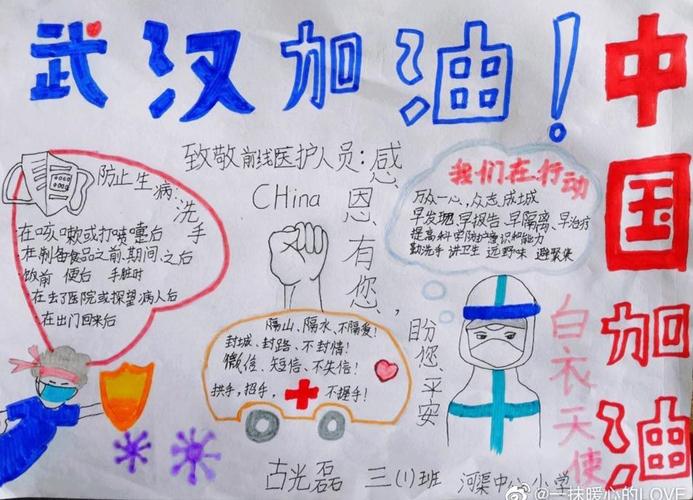 武汉加油!
中国加油
致敬前线医护人员:
感恩有您,
盼您平安
CHina
防止生病:洗手
·在咳嗽或打喷嚏后
·在制备食品之前,期间,之后
·饭前 便后 手脏时
·在去了医院或探望病人后
·在出门回来后
我们在行动
万众一心,众志成城
早发现,早报告、早隔离、早治疗
提高科学防护意识和能力
勤洗手 讲卫生 远野味 避聚集
隔山、隔水、不隔爱!
封城、封路、不封情!
微信、短信、不失信!
拱手,招手,不握手!
白衣天使
古光磊 三(1)班 河渠中心小学
@一抹暖心的LOVE